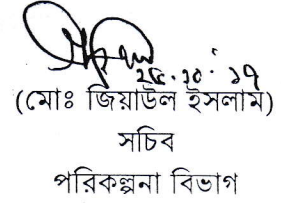 ২৫.১০.১৭
(মোঃ জিয়াউল ইসলাম)
সচিব
পরিকল্পনা বিভাগ